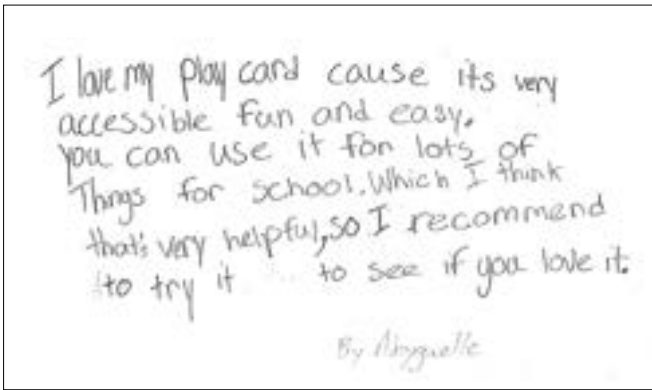 I love my play card cause its very
accessible fun and easy.
you can use it for lots of
Things for school. Which I think
that's very helpful, so I recommend
to try it to see if you love it.
By